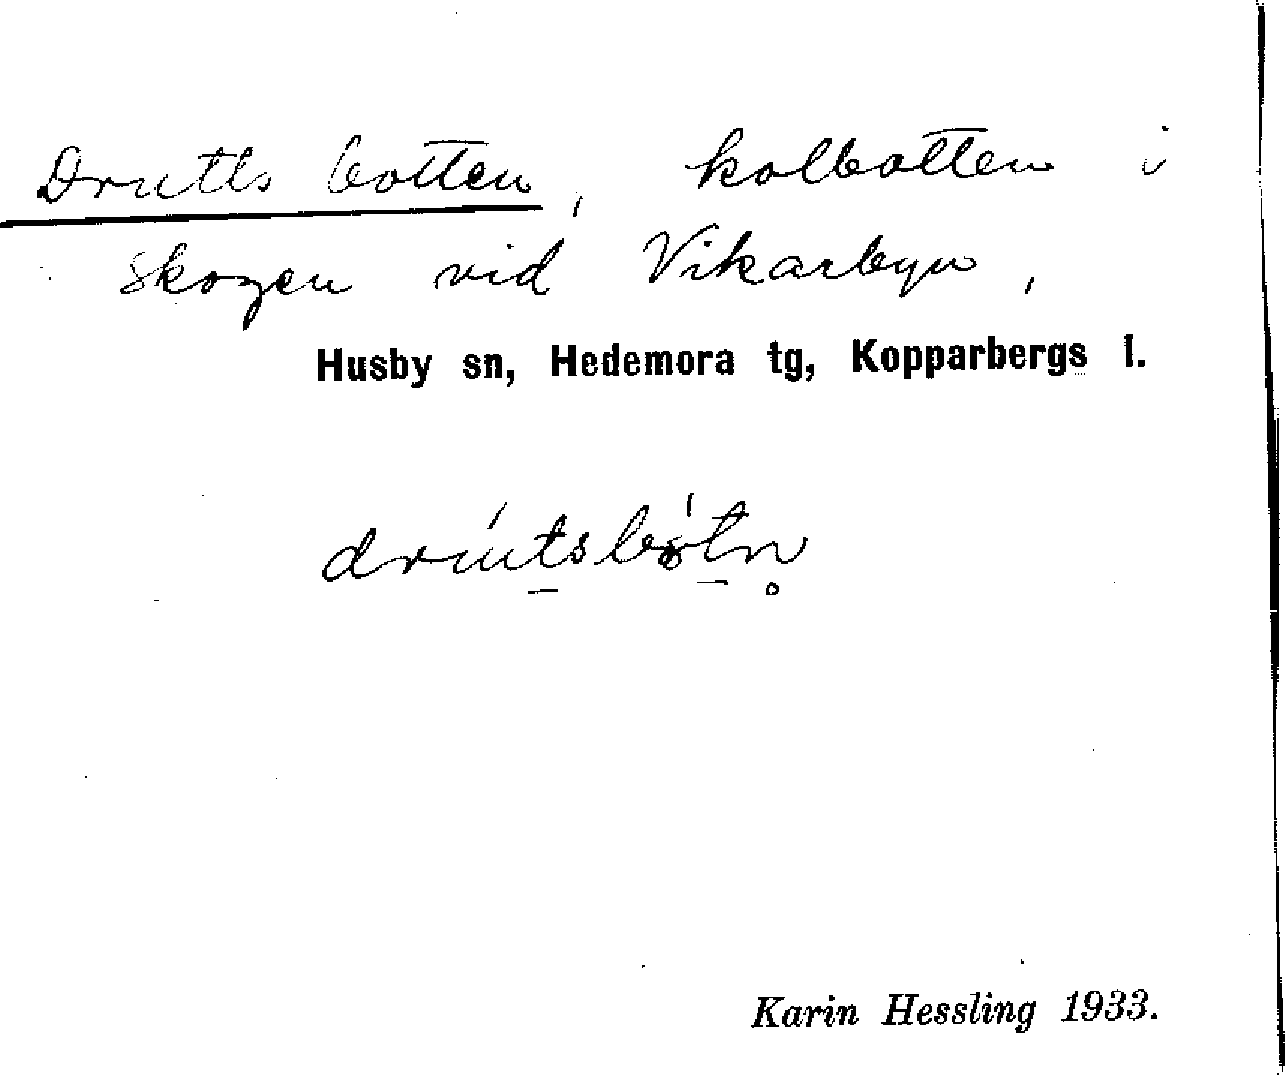 Drutts botten, kolbotten i
skogen vid Vikarbyn,
Husby sn, Hedemora tg, Kopparbergs l.
drútsbòtn̥
Karin Hessling 1933.